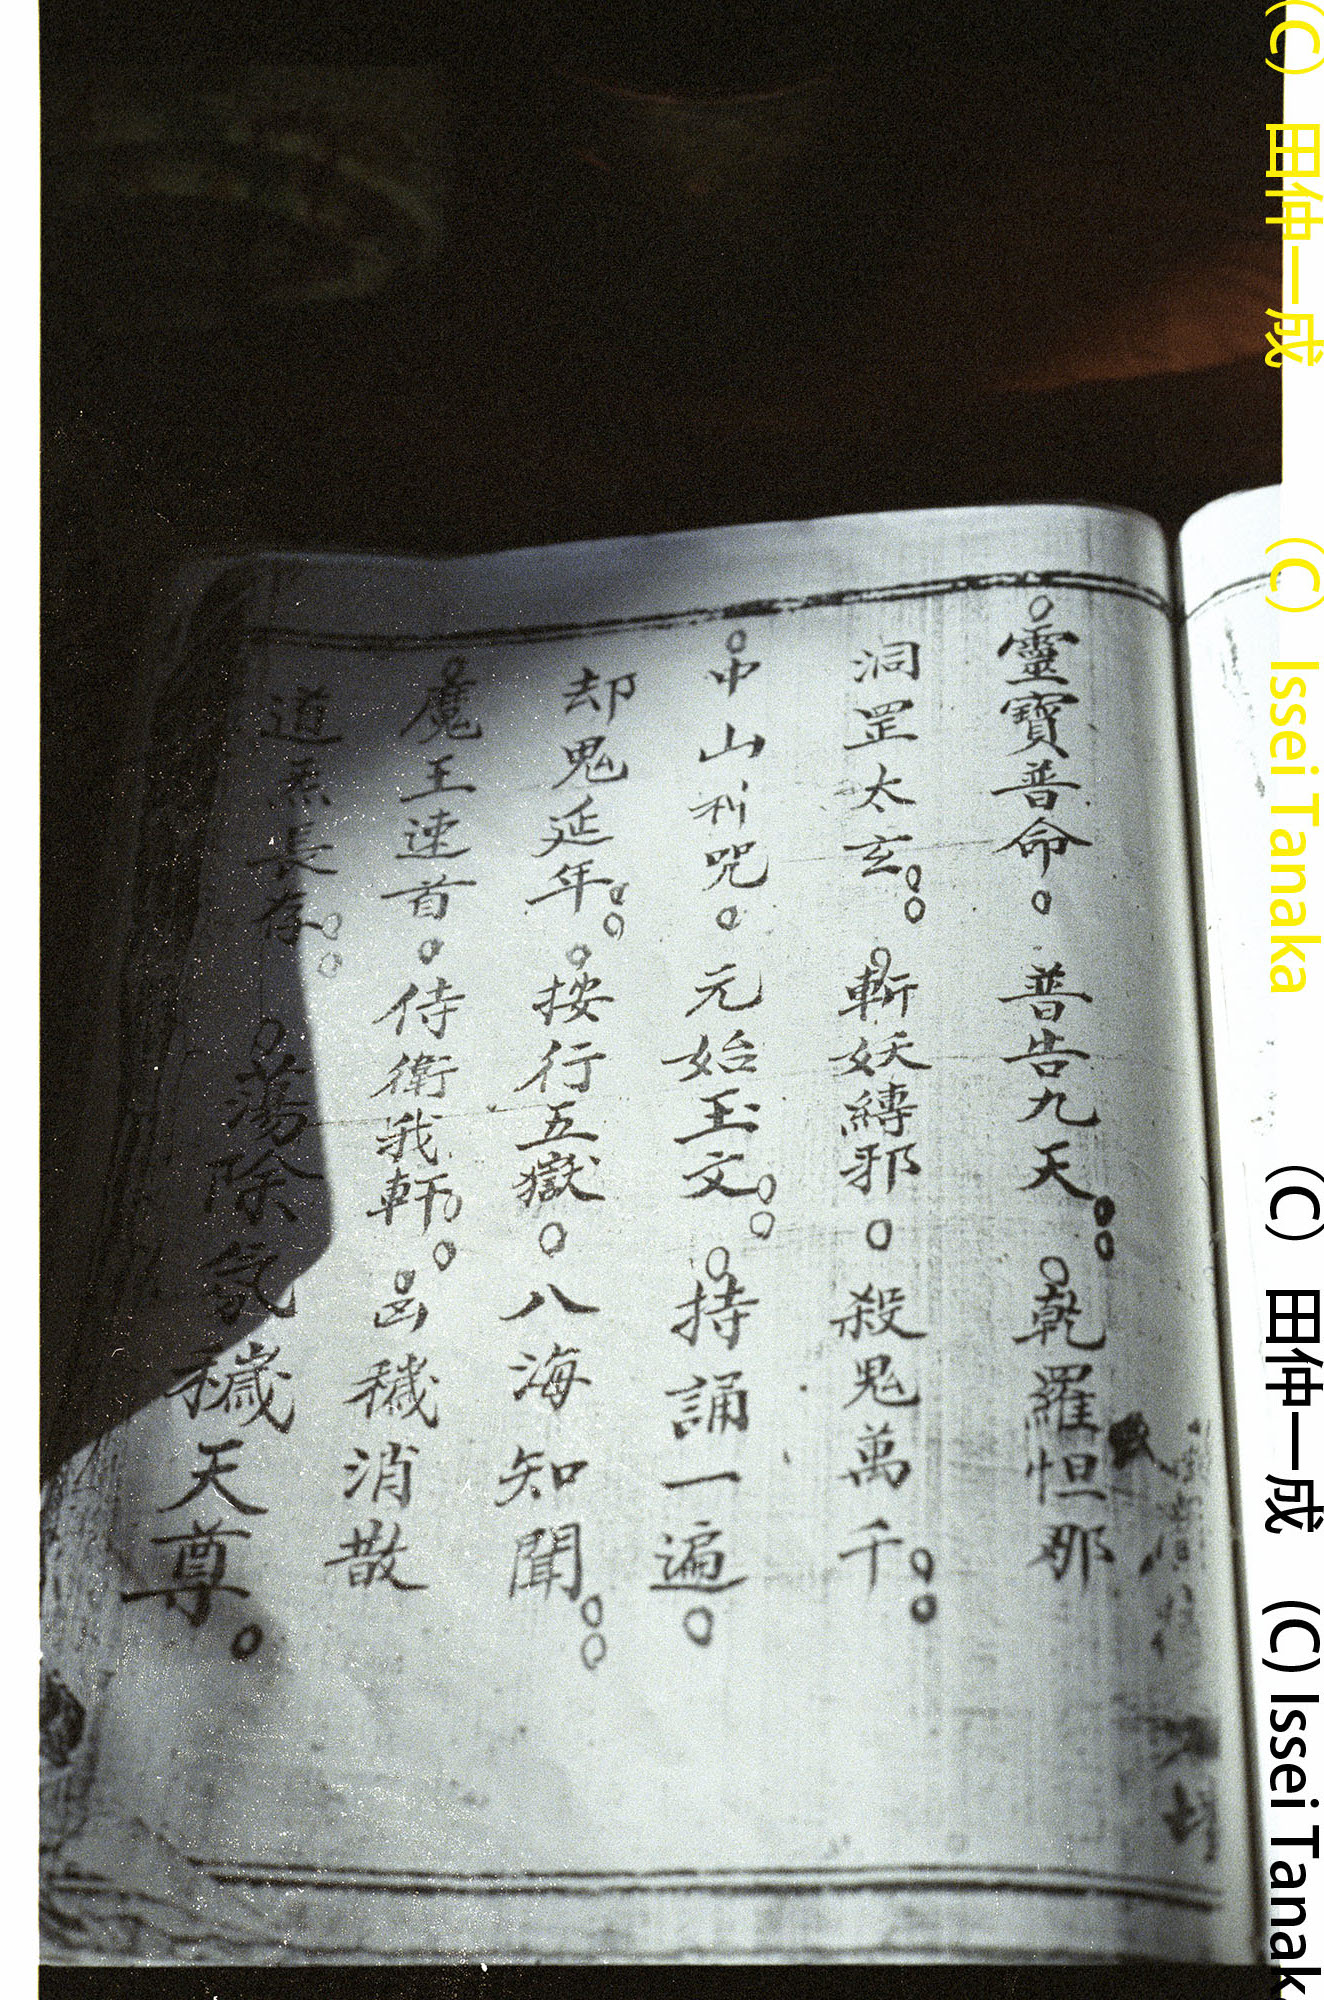 靈寶普命。普告九天。。乾羅怛那
洞罡太玄。。斬妖縛邪。殺鬼萬千。。
中山利咒。元始玉文。。持誦一遍。
却鬼延年。。按行五嶽。八海知聞。。
魔王速首。侍衛我軒。。凶穢消散
道炁長存。。蕩除氛穢天尊。
(C) 田仲一成 (C) Issei Tanaka (C) 田仲一成 (C) Issei Tanak